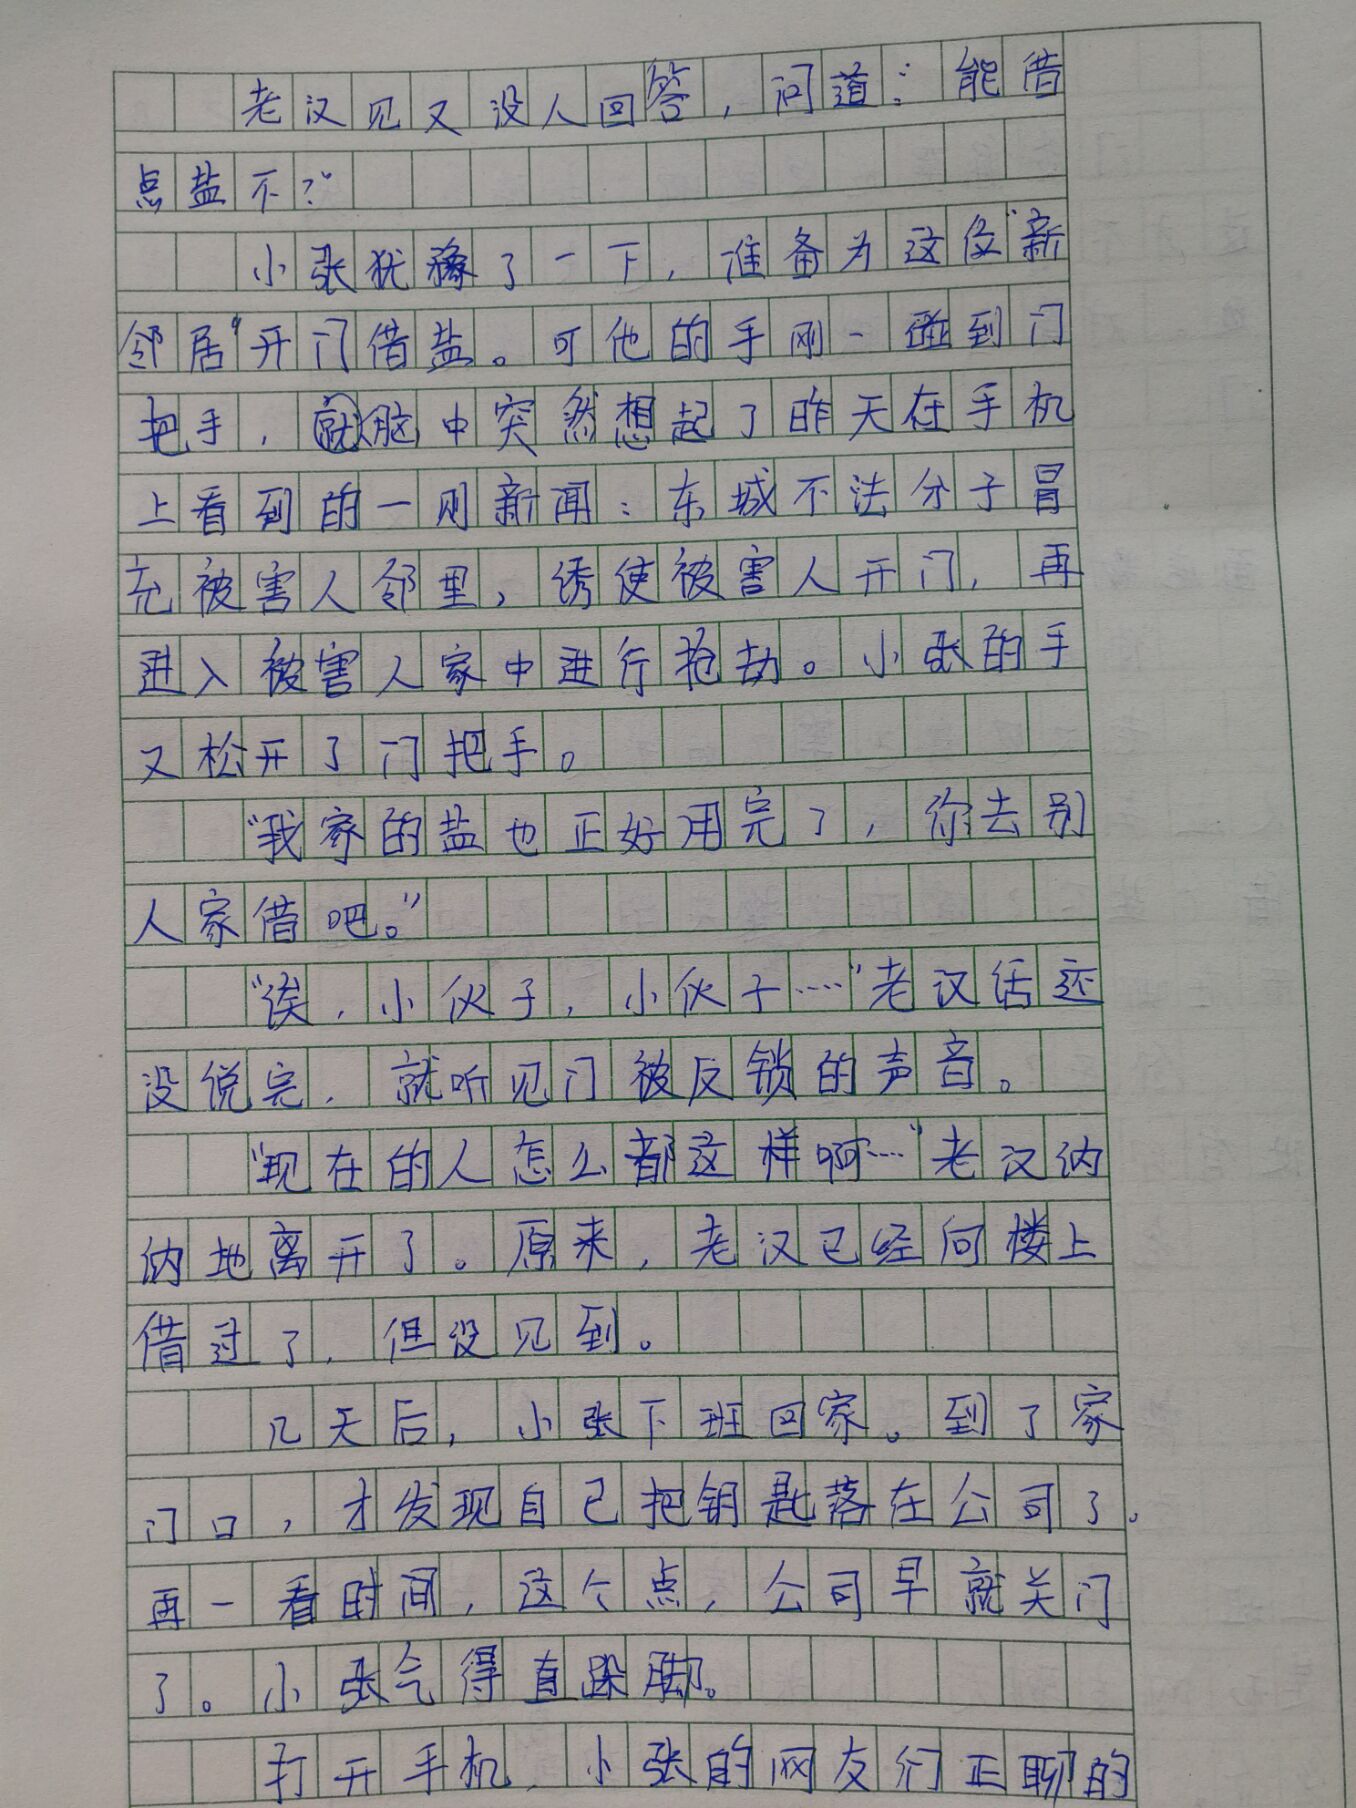 老汉见又没人回答，问道：“能借
点盐不？”
小张犹豫了一下，准备为这位“新
邻居”开门借盐。可他的手刚一碰到门
把手，就脑中突然想起了昨天在手机
上看到的一则新闻：东城不法分子冒
充被害人邻里，诱使被害人开门，再
进入被害人家中进行抢劫。小张的手
又松开了门把手。
“我家的盐也正好用完了，你去别
人家借吧。”
“诶，小伙子，小伙子……”老汉话还
没说完，就听见门被反锁的声音。
“现在的人怎么都这样啊……”老汉讷
讷地离开了。原来，老汉已经向楼上
借过了，但没见到。
几天后，小张下班回家。到了家
门口，才发现自己把钥匙落在公司了。
再一看时间，这个点，公司早就关门
了。小张气得直跺脚。
打开手机，小张的网友们正聊的